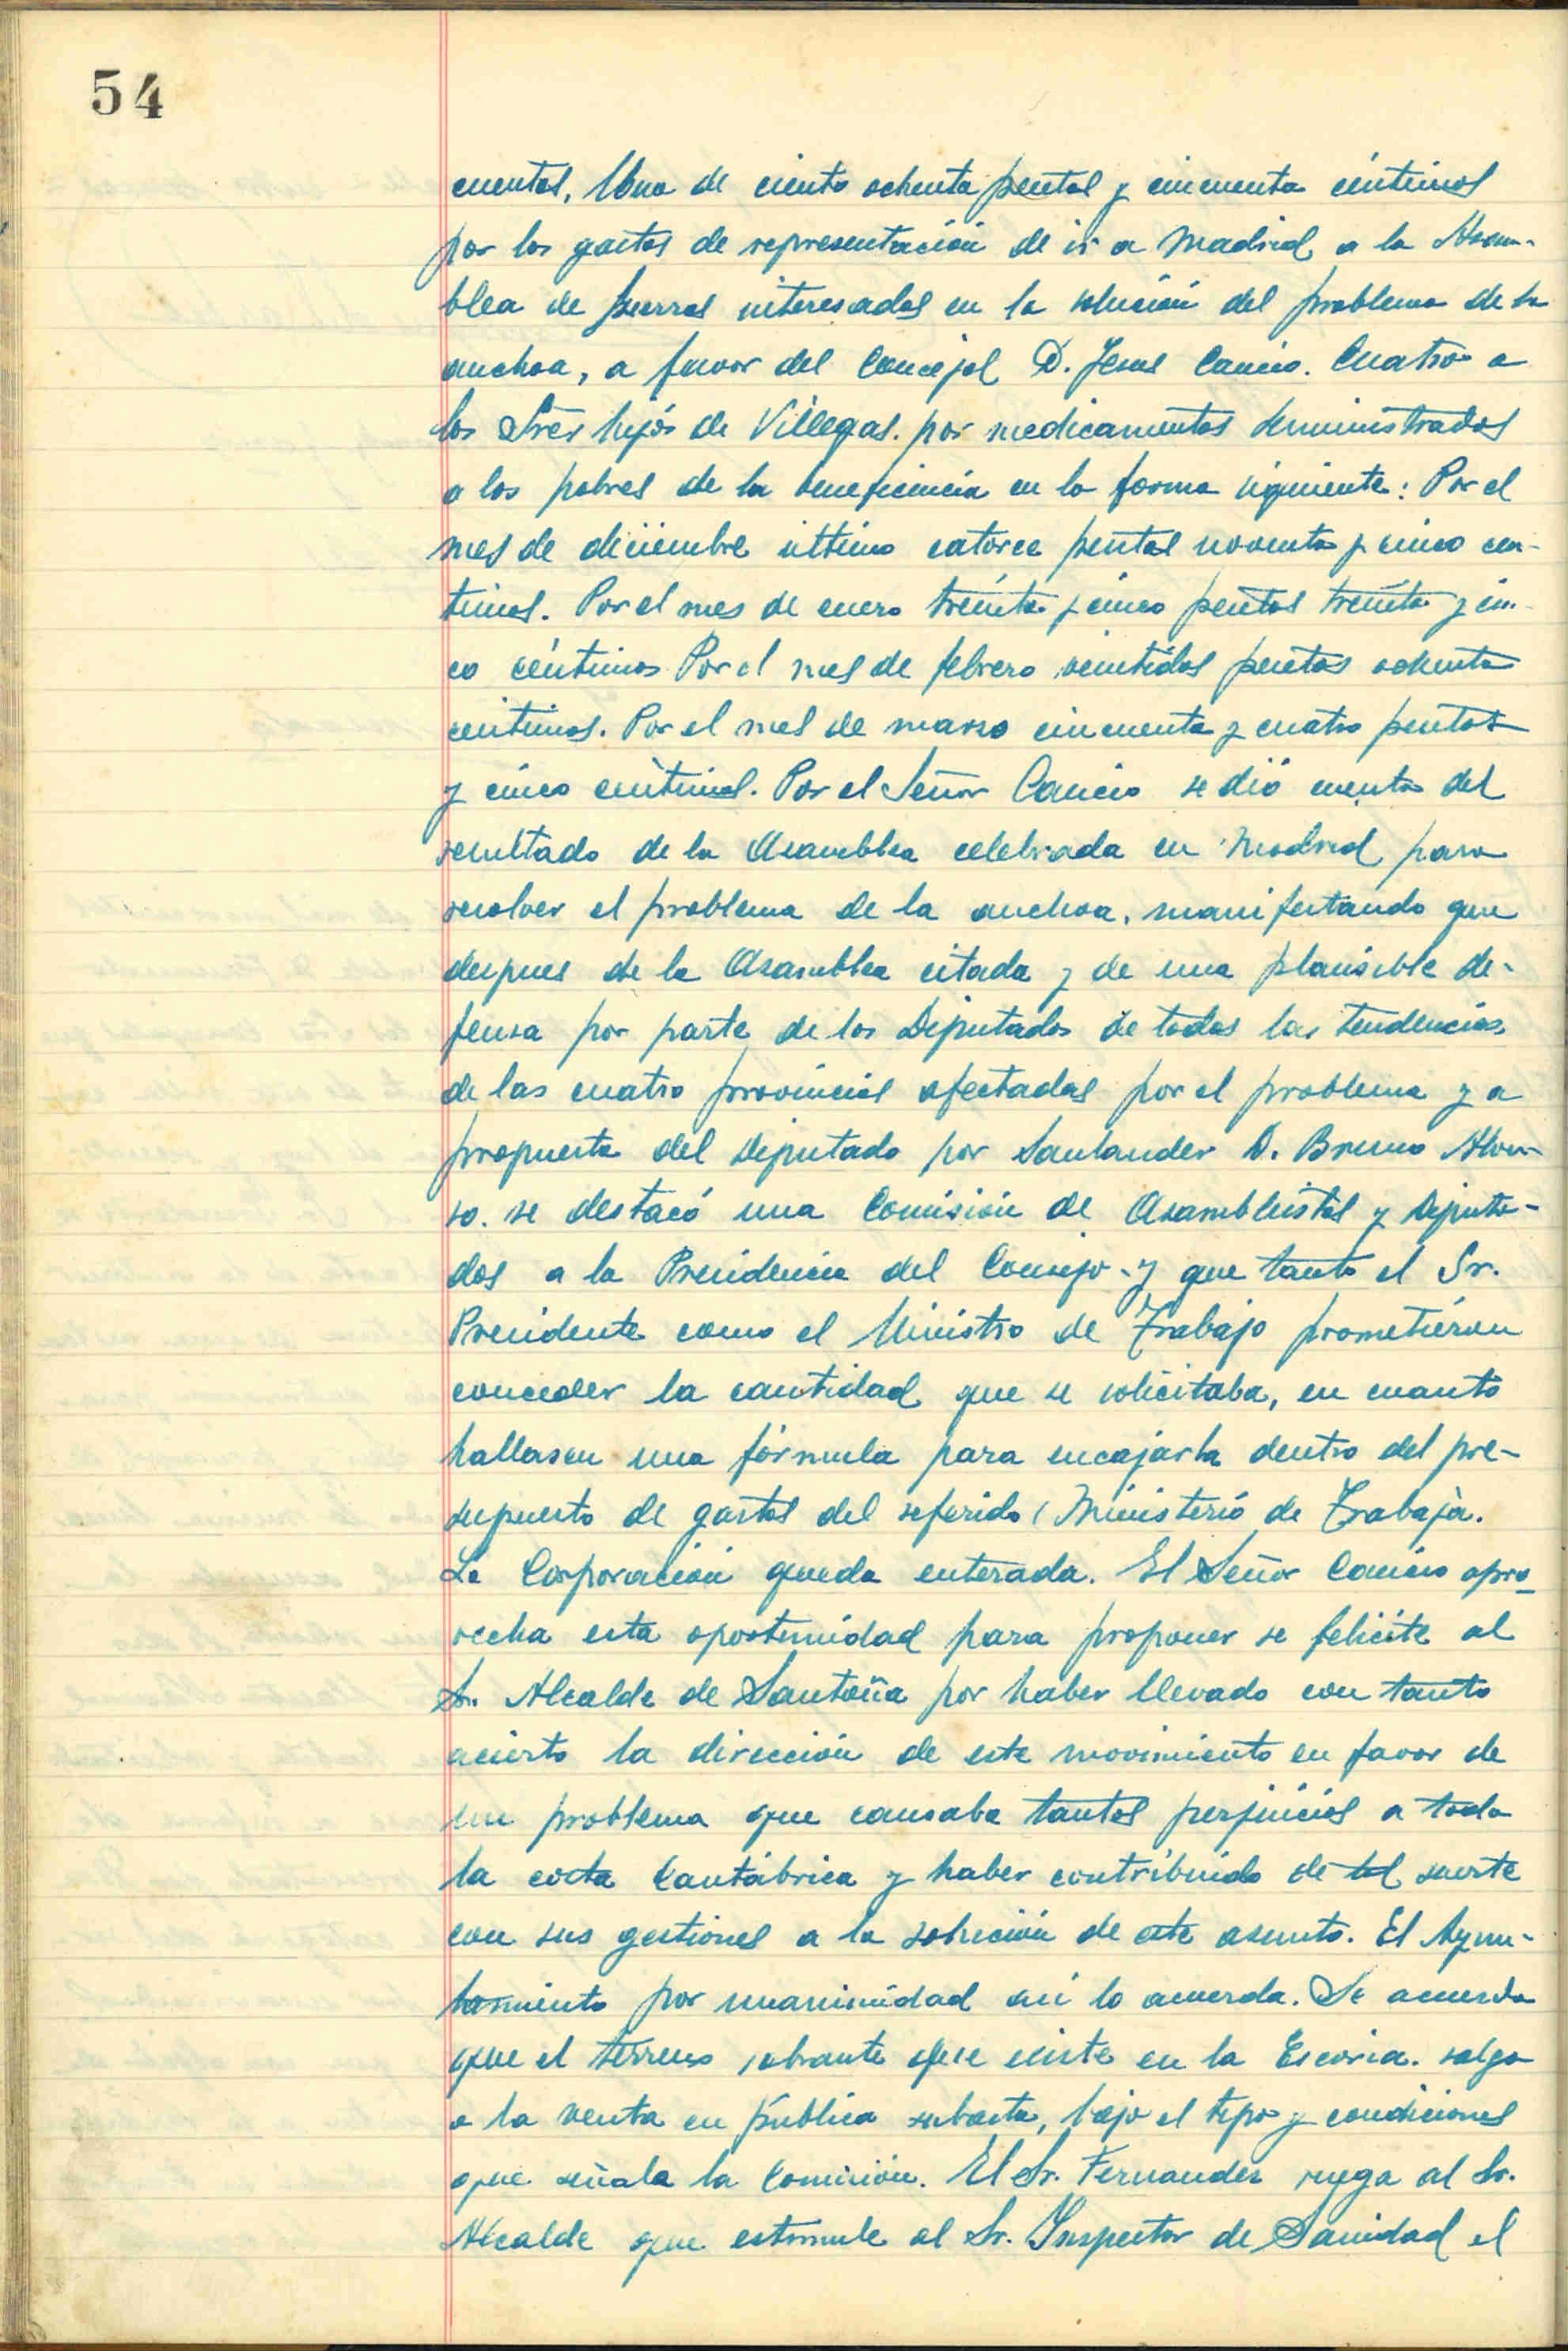 54
cuentas. Una de ciento ochenta pesetas y cincuenta céntimos
por los gastos de representación de ir a Madrid a la Asam-
blea de fuerzas interesadas en la solución del problema de la
anchoa, a favor del Concejal D. Jesus Cancio. Cuatro a
los Sres hijos de Villegas. por medicamentos suministrados
a los pobres de la beneficencia en la forma siguiente: Por el
mes de diciembre ultimo catorce pesetas noventa y cinco cen-
timos. Por el mes de enero treinta y cinco pesetas treinta y cin-
co céntimos Por el mes de febrero veintidos pesetas ochenta
centimos. Por el mes de marzo cincuenta y cuatro pesetas
y cinco céntimos. Por el Señor Cancio se dió cuenta del
resultado de la Asamblea celebrada en Madrid para
resolver el problema de la anchoa, manifestando que
despues de la Asamblea citada y de una plausible de-
fensa por parte de los Diputados de todas las tendencias
de las cuatro provincias afectadas por el problema y a
propuesta del Diputado por Santander D. Bruno Alon-
so. se destacó una Comisión de Asambleistas y Diputa-
dos a la Presidencia del Consejo y que tanto el Sr.
Presidente como el Ministro de Trabajo prometieron
conceder la cantidad que se solicitaba, en cuanto
hallasen una fórmula para encajarla dentro del pre-
supuesto de gastos del referido Ministerio de Trabajo.
La Corporación queda enterada. El Señor Cancio apro-
vecha esta oportunidad para proponer se felicite al
Sr. Alcalde de Santoña por haber llevado con tanto
acierto la dirección de este movimiento en favor de
un problema que causaba tantos perjuicios a toda
la costa Cantábrica y haber contribuido de tal suerte
con sus gestiones a la solución de este asunto. El Ayun-
tamiento por unanimidad asi lo acuerda. Se acuerda
que el terreno sobrante que existe en la Escoria. salga
a la venta en pública subasta, bajo el tipo y condiciones
que señala la Comisión. El Sr. Fernandez ruega al Sr.
Alcalde que estimule al Sr. Inspector de Sanidad el